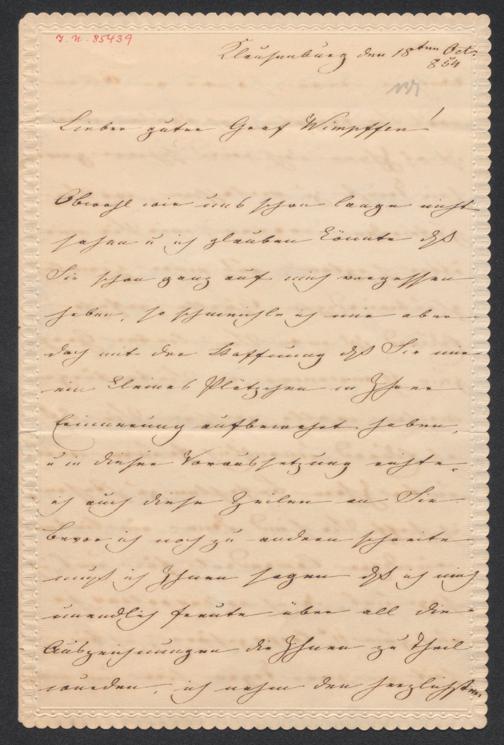 J. N. 85439
Klausenburg den 18ten Oct.
854
Lieber guter Graf Wimpffen!
Obwohl wir uns schon lange nicht
sahen u ich glauben könnte dß
Sie schon ganz auf mich vergessen
haben, so schmeichle ich mir aber
doch mit der Hoffnung dß Sie mir
ein kleines Plätzchen in Ihrer
Erinnerung aufbewahrt haben,
u in dieser Voraussetzung richte
ich auch diese Zeilen an Sie
Bevor ich noch zu andern schreite
muß ich Ihnen sagen dß ich mich
unendlich freute über all die
Auszeichnungen die Ihnen zu Theil
wurden, ich nahm den herzlichsten